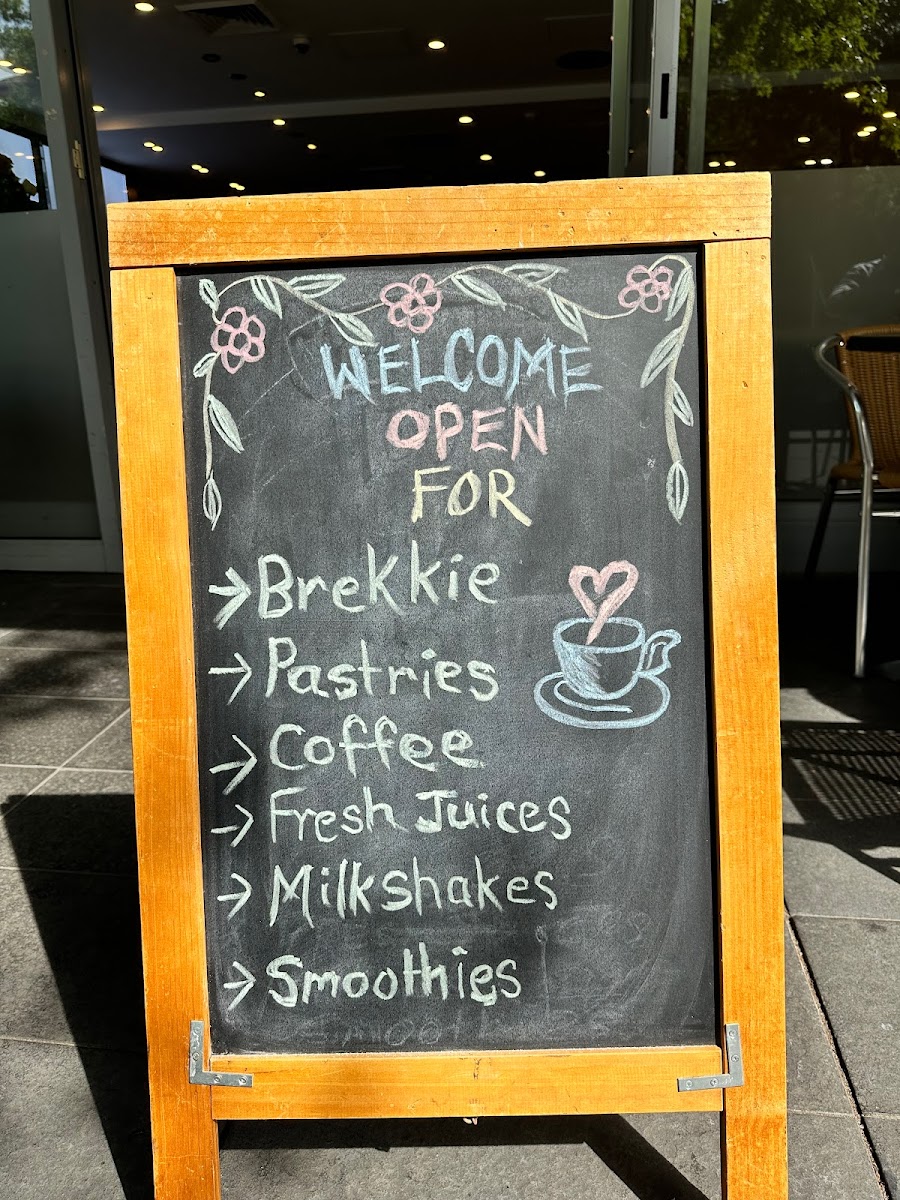 WELCOME
OPEN
FOR
→ Brekkie
→ Pastries
→ Coffee
→ Fresh Juices
→ Milkshakes
→ Smoothies